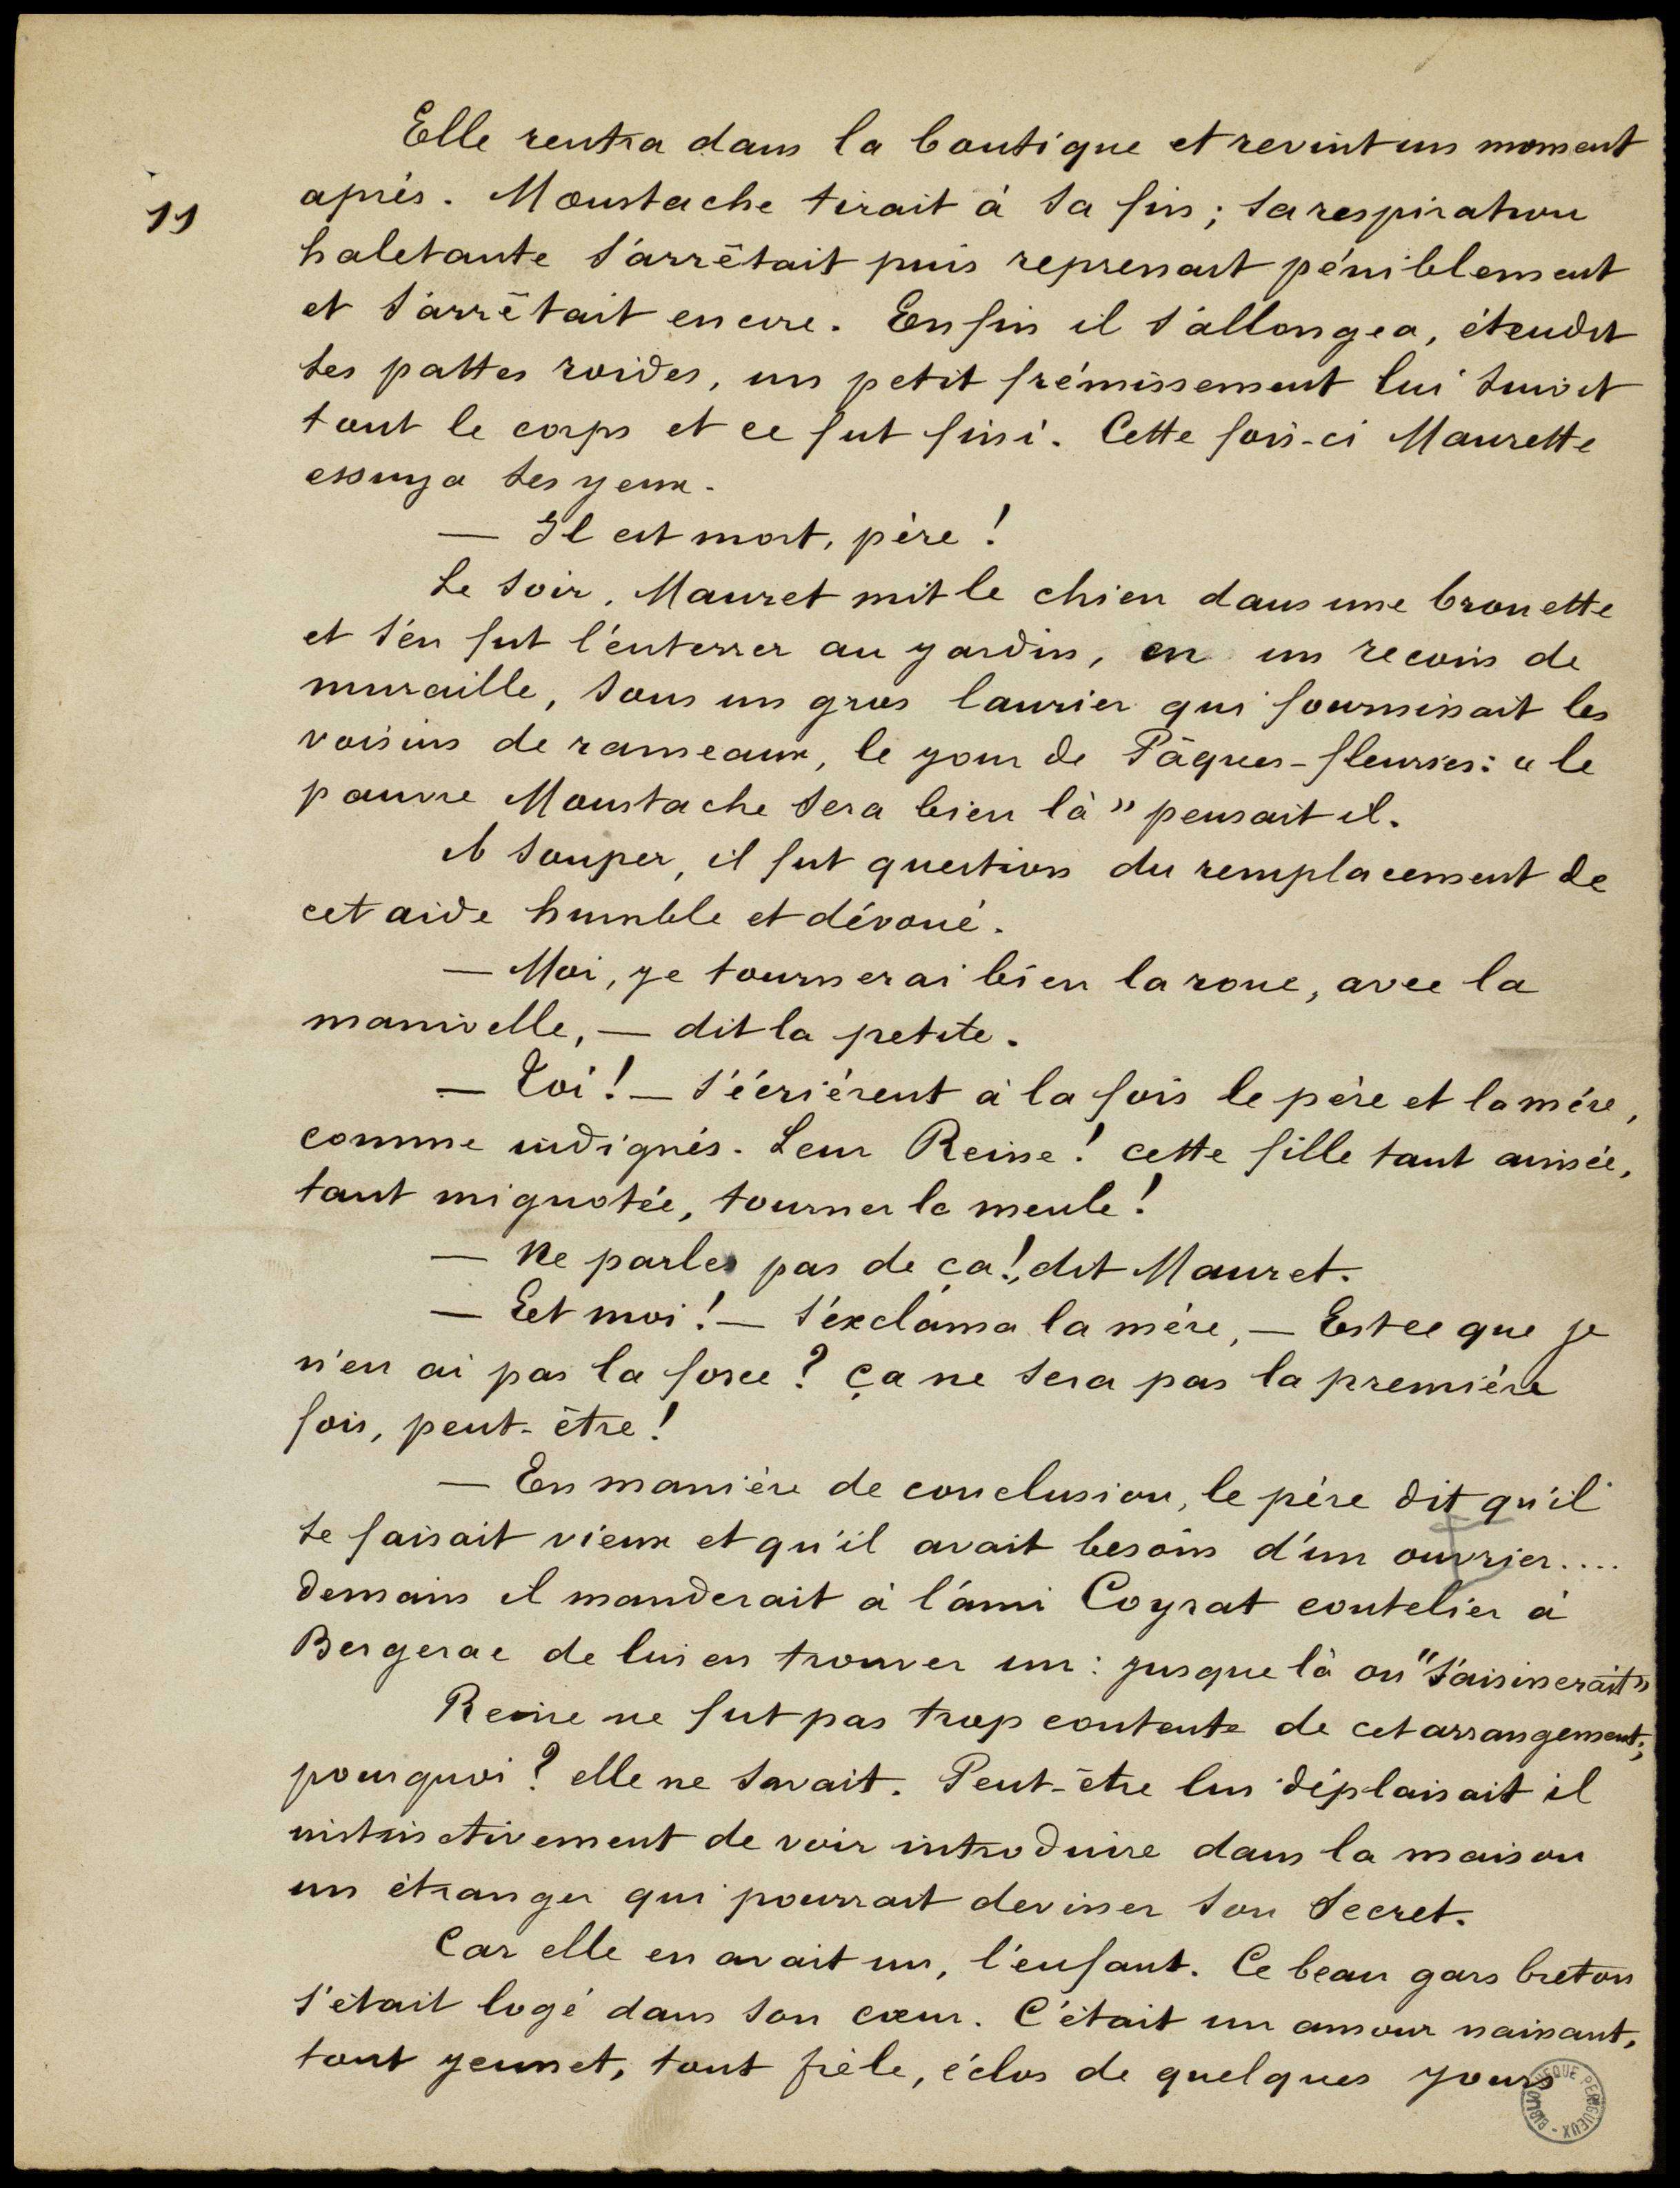 Elle rentra dans la boutique et revint un moment
11
après. Moustache tirait à sa fin ; sa respiration
haletante s'arrêtait puis reprenait péniblement
et s'arrêtait encore. Enfin il s'allongea, étendit
ses pattes roides, un petit frémissement lui suivit
tout le corps et ce fut fini. Cette fois-ci Maurette
essuya ses yeux.
— Il est mort, père !
Le soir, Mauret mit le chien dans une brouette
et s'en fut l'enterrer au jardin, en un recoin de
muraille, sous un gros laurier qui fournissait les
voisins de rameaux, le jour de Pâques-fleuries : « le
pauvre Moustache sera bien là » pensait il.
A souper, il fut question du remplacement de
cet aide humble et dévoué.
— Moi, je tournerai bien la roue, avec la
manivelle, — dit la petite.
— Toi ! — s'écrièrent à la fois le père et la mère,
comme indignés. Leur Reine ! cette fille tant aimée,
tant mignotée, tourner la meule !
— Ne parles pas de ça !, dit Mauret.
— Eet moi ! — s'exclama la mère, — Est ce que je
n'en ai pas la force ? ça ne sera pas la première
fois, peut-être !
— En manière de conclusion, le père dit qu'il
se faisait vieux et qu'il avait besoin d'un ouvrier....
demain il manderait à l'ami Coyrat coutelier à
Bergerac de lui en trouver un : jusque là on "s'aisinerait"
Reine ne fut pas trop contente de cet arrangement ;
pourquoi ? elle ne savait. Peut-être lui déplaisait il
instinctivement de voir introduire dans la maison
un étranger qui pourrait deviner son secret.
Car elle en avait un, l'enfant. Ce beau gars breton
s'était logé dans son cœur. C'était un amour naissant,
tout jeunet, tout frêle, éclos de quelques jours
BIBLIOTHEQUE PERIGUEUX